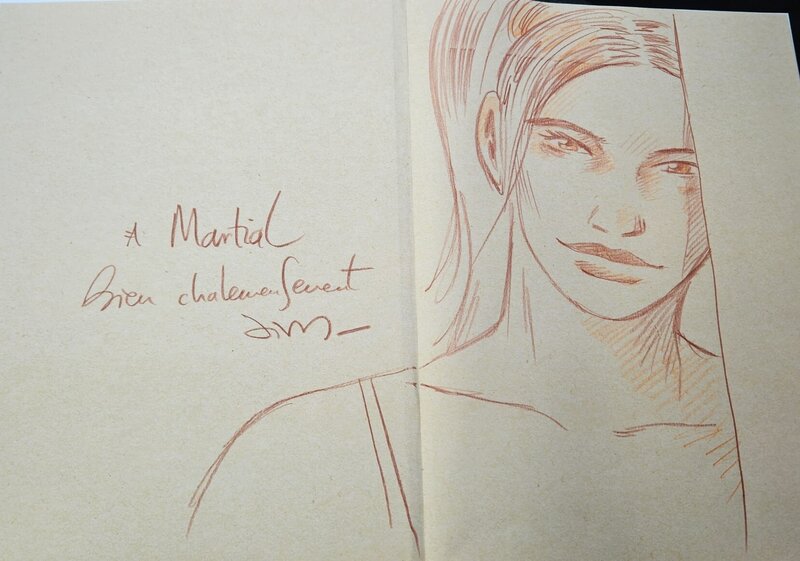 A Martial
Bien chaleureusement